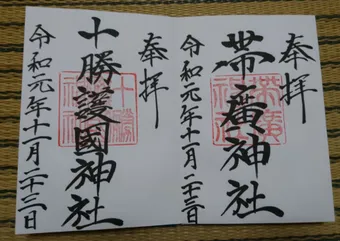 奉拝
帯廣神社
令和元年十一月二十三日
奉拝
十勝護國神社
令和元年十一月二十三日